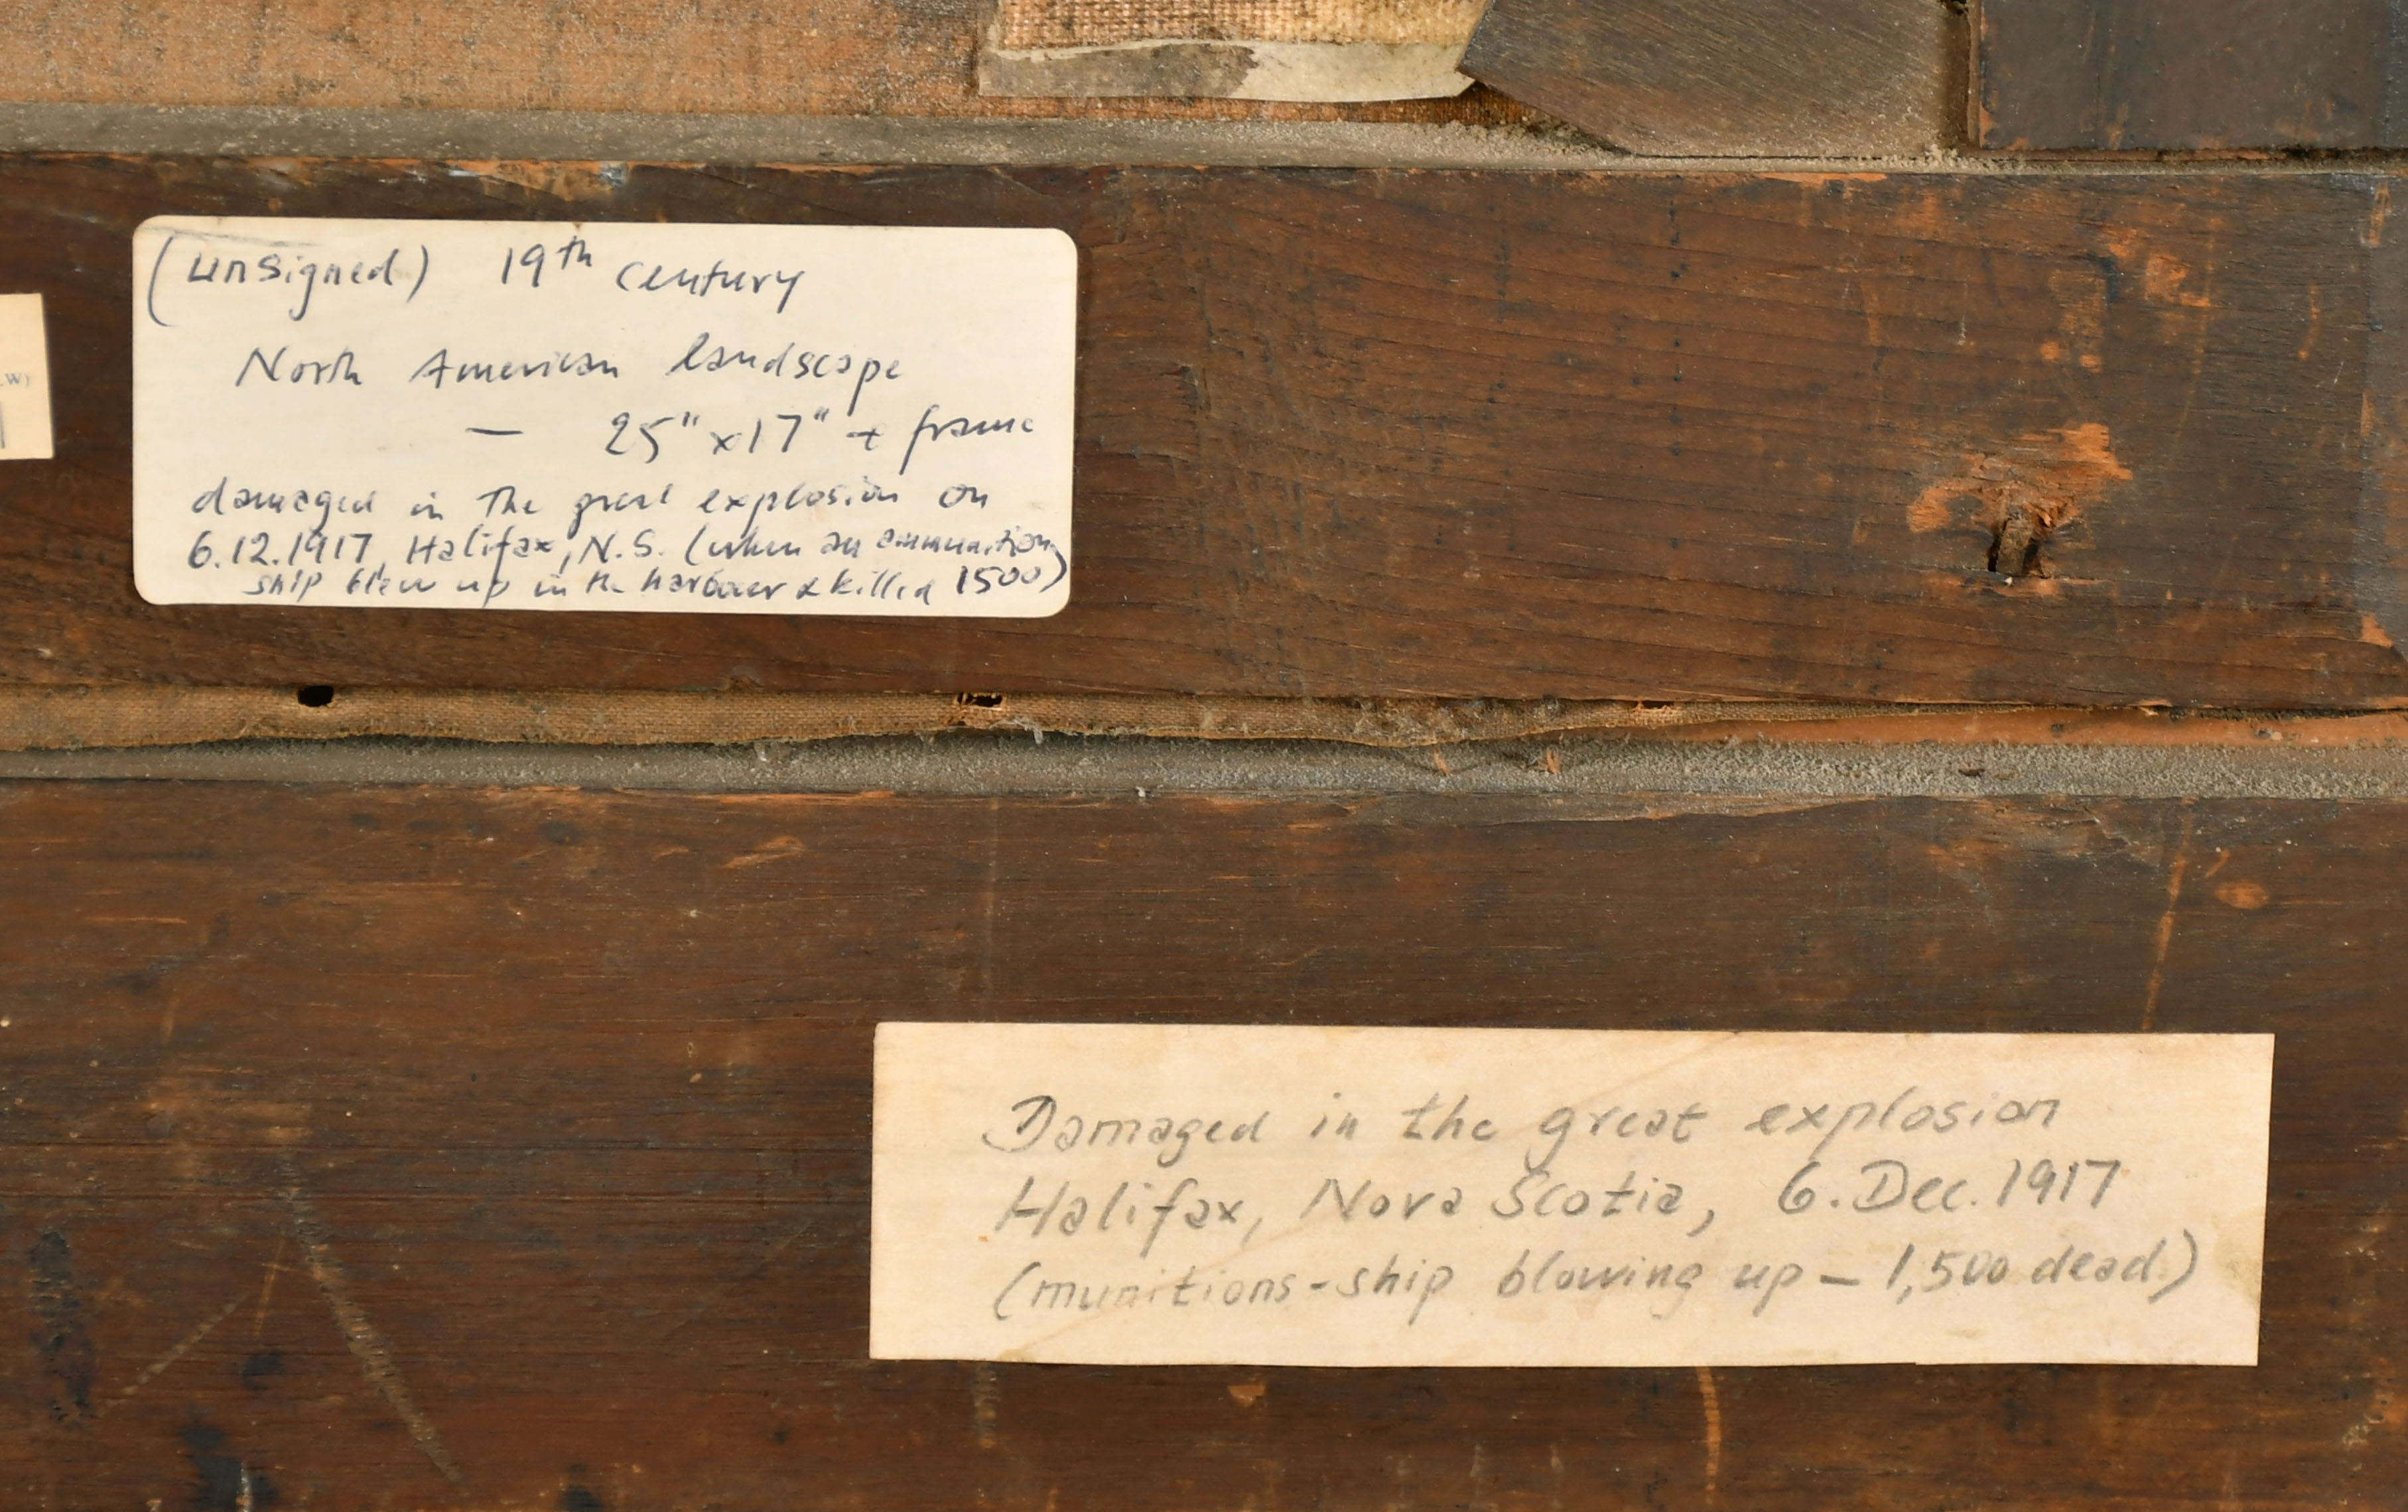 (unsigned) 19th century
North American landscape
— 25" x 17" + frame
damaged in the great explosion on
6.12.1917, Halifax, N.S. (when an ammunition
ship blew up in the harbour & killed 1500)
Damaged in the great explosion
Halifax, Nova Scotia, 6. Dec. 1917
(munitions-ship blowing up — 1,500 dead.)